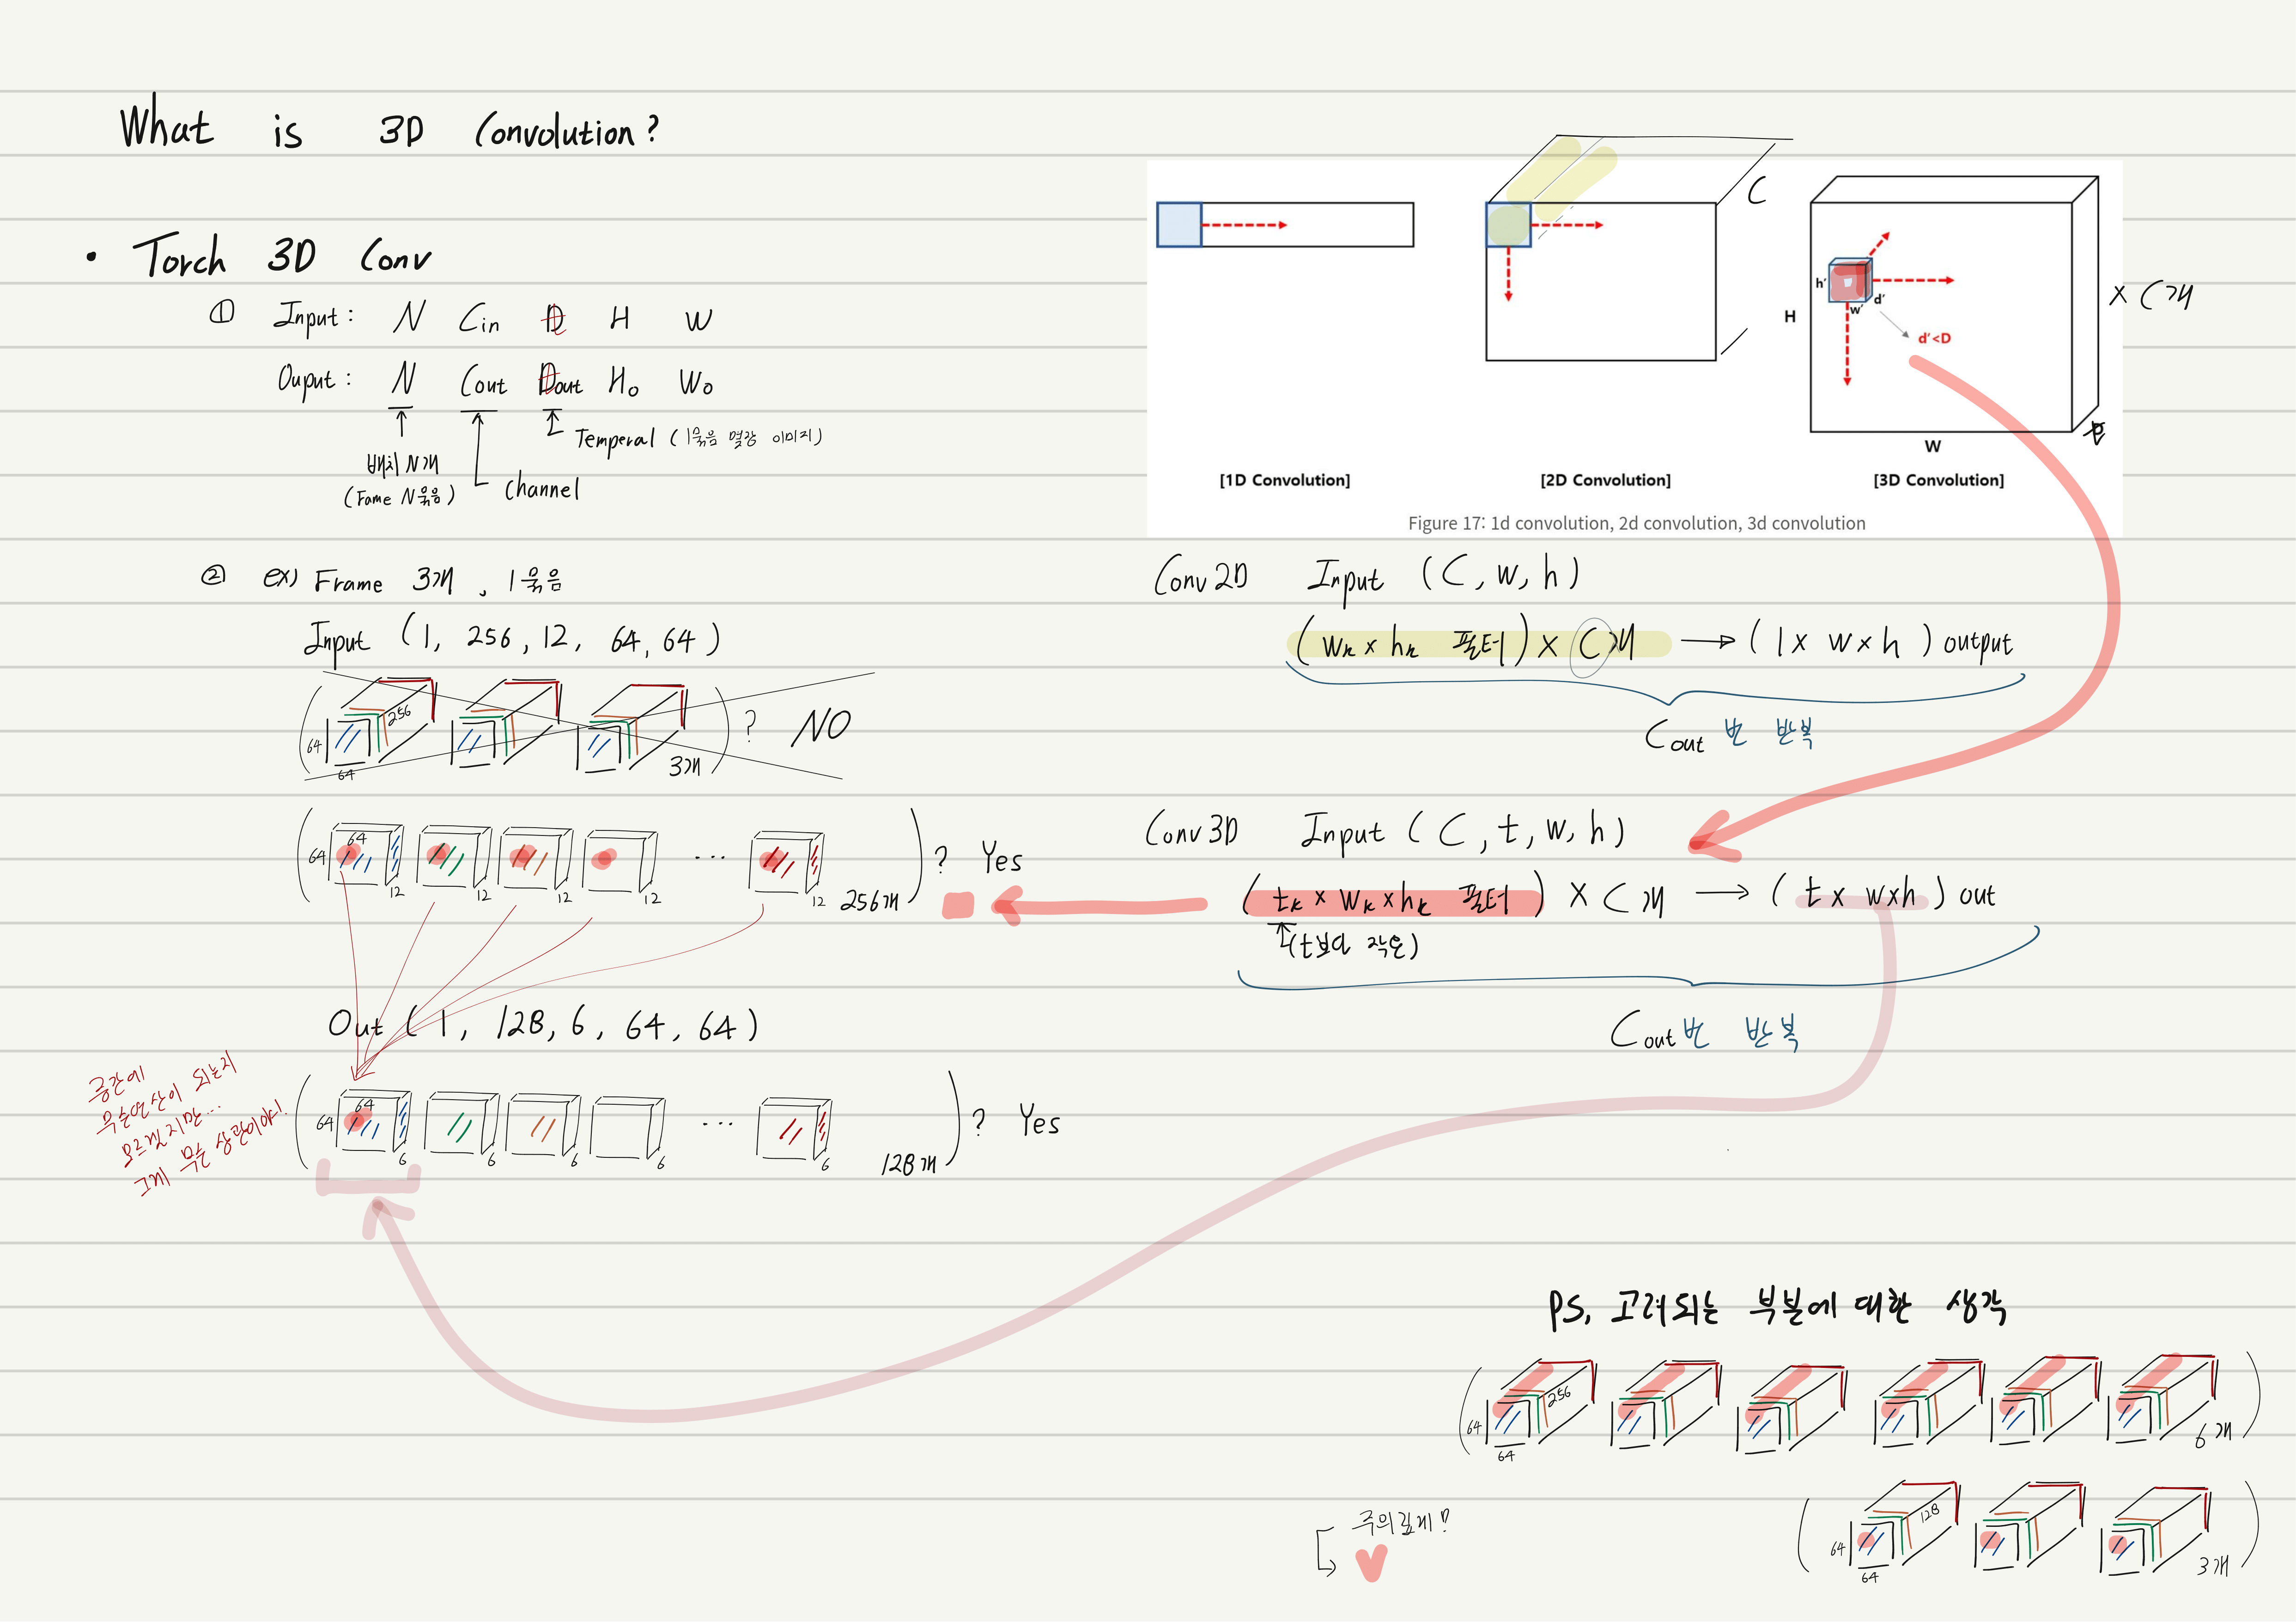 What is 3D Convolution?
• Torch 3D Conv
① Input : N Cin D H W
Ouput : N Cout Dout Ho Wo
배치 N개
(Fame N묶음)
channel
Temperal (1묶음 몇장 이미지)
② ex) Frame 3개, 1묶음
Input (1, 256, 12, 64, 64)
64 64 256 3개 ? NO
64 64 12 12 12 12 ... 12 256개 ? Yes
Out (1, 128, 6, 64, 64)
중간에
무슨연산이 되는지
모르겠지만...
그게 무슨 상관이야!
64 64 6 6 6 6 ... 6 128개 ? Yes
C
h' w' d'
d'<D
H
W
x C개
[1D Convolution] [2D Convolution] [3D Convolution]
Figure 17: 1d convolution, 2d convolution, 3d convolution
Conv2D Input (C, w, h)
(wk x hk 필터) x C개 → (1 x w x h) output
Cout 번 반복
Conv3D Input (C, t, w, h)
(tk x wk x hk 필터) x C개 → (t x wxh) out
(t보다 작은)
Cout 번 반복
PS, 고려되는 부분에 대한 생각
64 64 256 6개
64 64 128 3개
주의깊게!